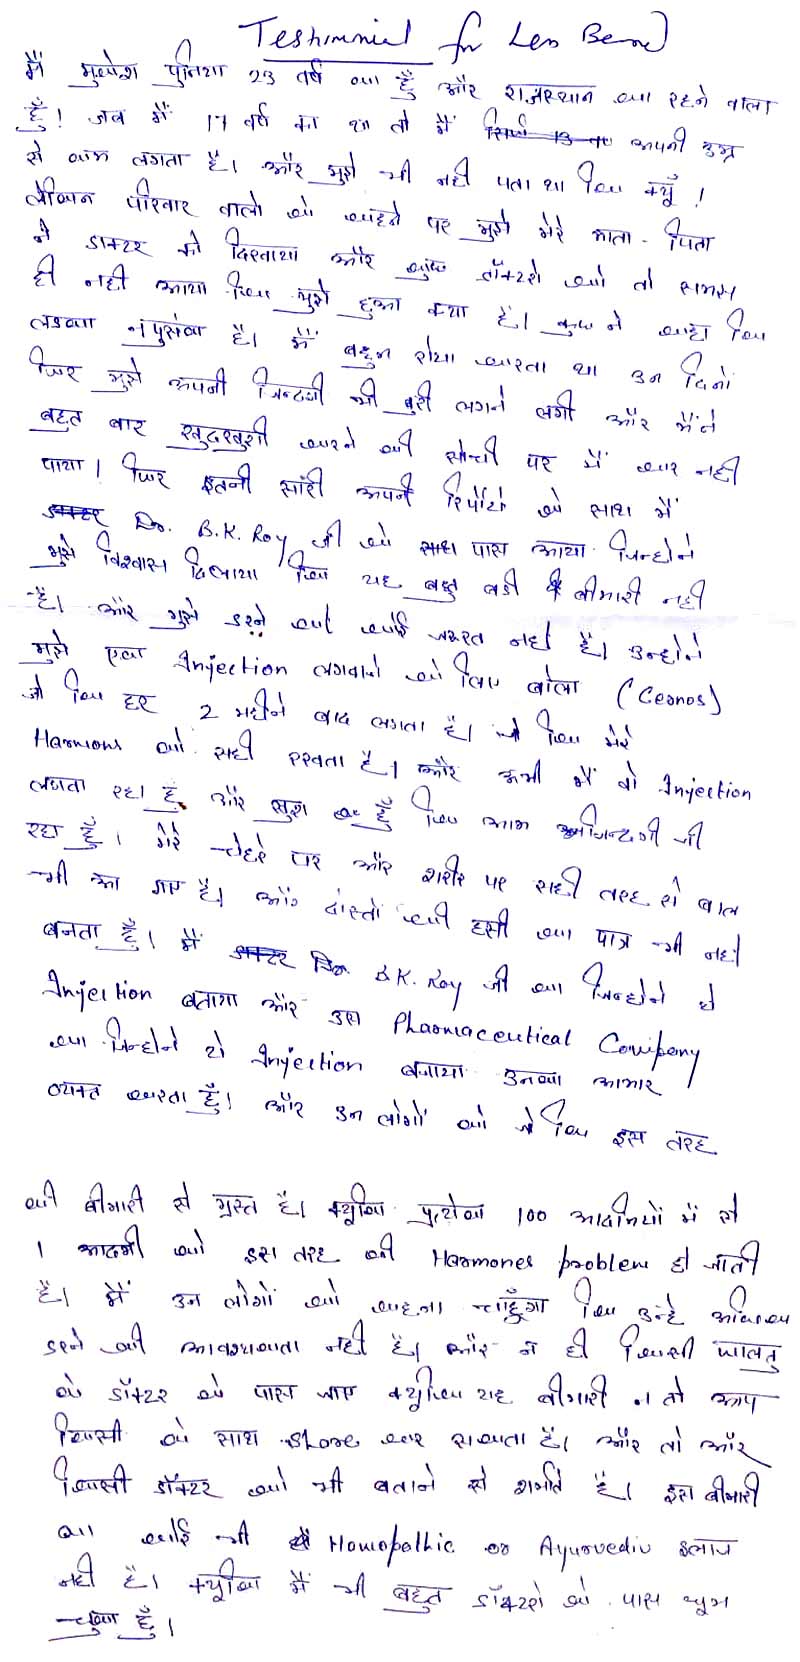 Testimonial for Les Bene
मैं मुकेश पुनिया 23 वर्ष का हूँ और राजस्थान का रहने वाला
हूँ! जब मैं 17 वर्ष का था तो मैं सिर्फ 13 का अपनी उम्र
से कम लगता है। और मुझे भी नही पता था कि क्यूँ!
लेकिन परिवार वालो के कहने पर मुझे मेरे माता-पिता
ने डाक्टर को दिखाया और कुछ डॉक्टरो को तो समझ
ही नही आया कि मुझे हुआ क्या है। कुछ ने कहा कि
लडका नंपुसंक है। मैं बहुत रोया करता था उन दिनों
फिर मुझे अपनी जिन्दगी भी बुरी लगने लगी और मैंने
बहुत बार खुदखुशी करने की सोची पर मैं कर नही
पाया। फिर इतनी सारी अपनी रिर्पोटो के साथ मैं
डाक्टर Dr. B.K. Roy जी के साथ पास आया जिन्होने
मुझे विश्वास दिलाया कि यह बहुत बडी बीमारी नही
है। और मुझे डरने की कोई जरूरत नही है। उन्होने
मुझे एक Injection लगवाने के लिए बोला (Cernos)
जो कि हर 2 महीने बाद लगता है। जो कि मेरे
Harmons को सही रखता है। और अभी मैं वो Injection
लगता रहा हूं और खुश हूँ कि आम जिन्दगी जी
रहा हूँ। मेरे चेहरे पर और शरीर पर सही तरह से बाल
भी आ गए है। और दोस्तो की हसी का पात्र भी नही
बनता हूँ। मैं डाक्टर Dr. B.K. Roy जी का जिन्होने ये
Injection बताया और उस Pharmaceutical Company
का जिन्होने यो Injection बनाया उनका आभार
व्यक्त करता हूँ। और उन लोगों को जो कि इस तरह
की बीमारी से ग्रस्त है। क्यूकि प्रत्येक 100 आदमियों में से
1 आदमी को इस तरह की Harmones problem हो जाती
है। मैं उन लोगों को कहना चाहूँगा कि उन्हे अधिक
डरने की आवश्यकता नही है। और न ही किसी फालतु
के डॉक्टर के पास जाए क्यूकि यह बीमारी न तो आप
किसी के साथ share कर सकता है। और तो और
किसी डॉक्टर को भी बताने से शर्माते है। इस बीमारी
का कोई भी Homopethic or Ayurvediv इलाज
नही है। क्यूकि मैं भी बहुत डॉक्टरो के पास घूम
चुका हूँ।